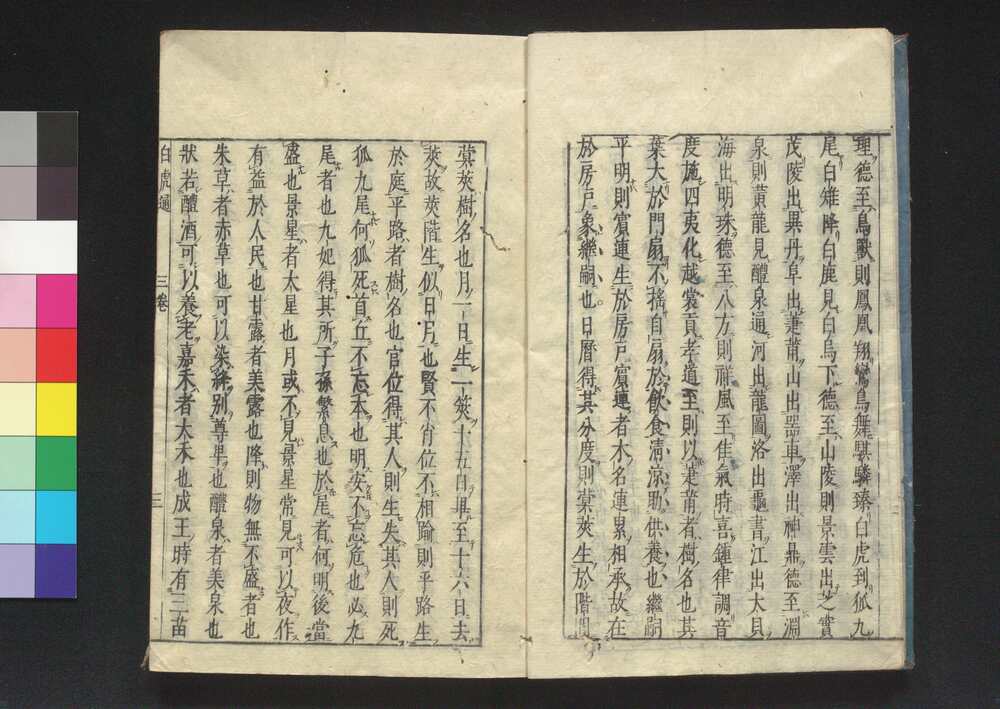 理德至鳥獸則鳳凰翔鸞鳥舞騏驎臻白虎到狐九
尾白雉降白鹿見白烏下德至山陵則景雲出芝實
茂陵出異丹阜出萐莆山出器車澤出神鼎德至淵
泉則黄龍見醴泉通河出龍圖洛出龜書江出大貝
海出明珠德至八方則祥風至佳氣時喜鍾律調音
度施四夷化越裳貢孝道至則以萐莆者樹名也其
葉大於門扇不揺自扇於飲食清涼助供養也繼嗣
平明則賓連生於房戸賓連者木名連累相承故在
於房戸象繼嗣也日曆得其分度則蓂莢生於階間
蓂莢樹名也月一日生一莢十五日畢至十六日去
莢故莢階生似日月也賢不肖位不相踰則平路生
於庭平路者樹名也官位得其人則生失其人則死
狐九尾何狐死首丘不忘本也明安不忘危也必九
尾者也九妃得其所子孫繁息也於尾者何明後當
盛也景星者大星也月或不見景星常見可以夜作
有益於人民也甘露者美露也降則物無不盛者也
朱草者赤草也可以染絳別尊卑也醴泉者美泉也
狀若醴酒可以養老嘉禾者大禾也成王時有三苗
白虎通 三卷 三